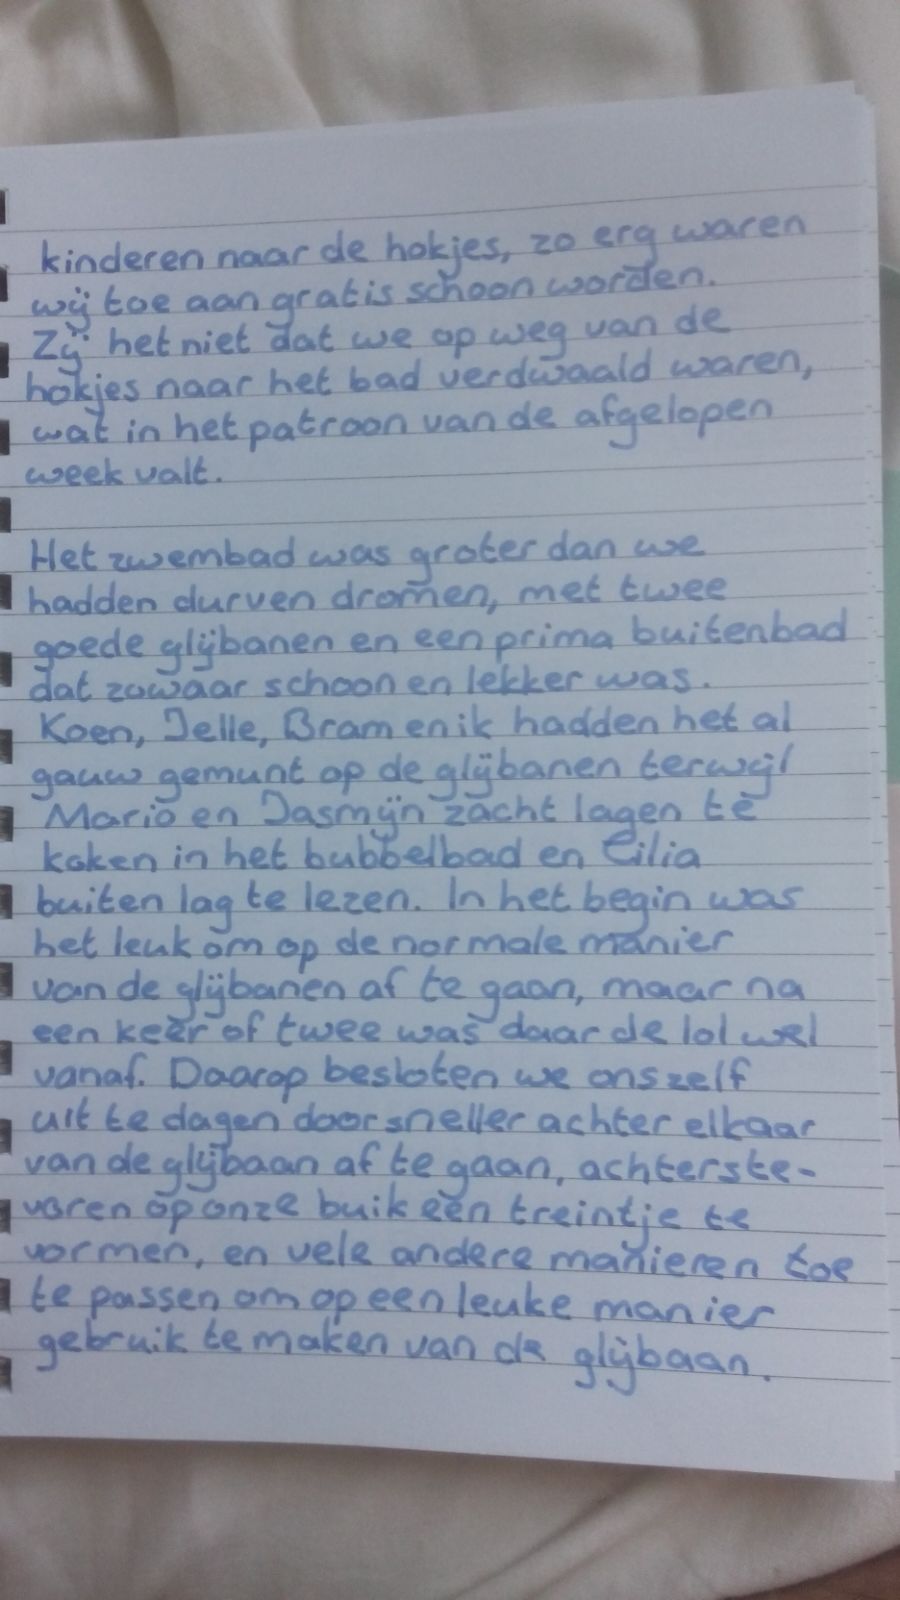 kinderen naar de hokjes, zo erg waren
wij toe aan gratis schoon worden.
Zij het niet dat we op weg van de
hokjes naar het bad verdwaald waren,
wat in het patroon van de afgelopen
week valt.
Het zwembad was groter dan we
hadden durven dromen, met twee
goede glijbanen en een prima buitenbad
dat zowaar schoon en lekker was.
Koen, Jelle, Bram en ik hadden het al
gauw gemunt op de glijbanen terwijl
Mario en Jasmijn zacht lagen te
koken in het bubbelbad en Cilia
buiten lag te lezen. In het begin was
het leuk om op de normale manier
van de glijbanen af te gaan, maar na
een keer of twee was daar de lol wel
vanaf. Daarop besloten we onszelf
uit te dagen door sneller achter elkaar
van de glijbaan af te gaan, achterste-
voren op onze buik een treintje te
vormen, en vele andere manieren toe
te passen om op een leuke manier
gebruik te maken van de glijbaan.